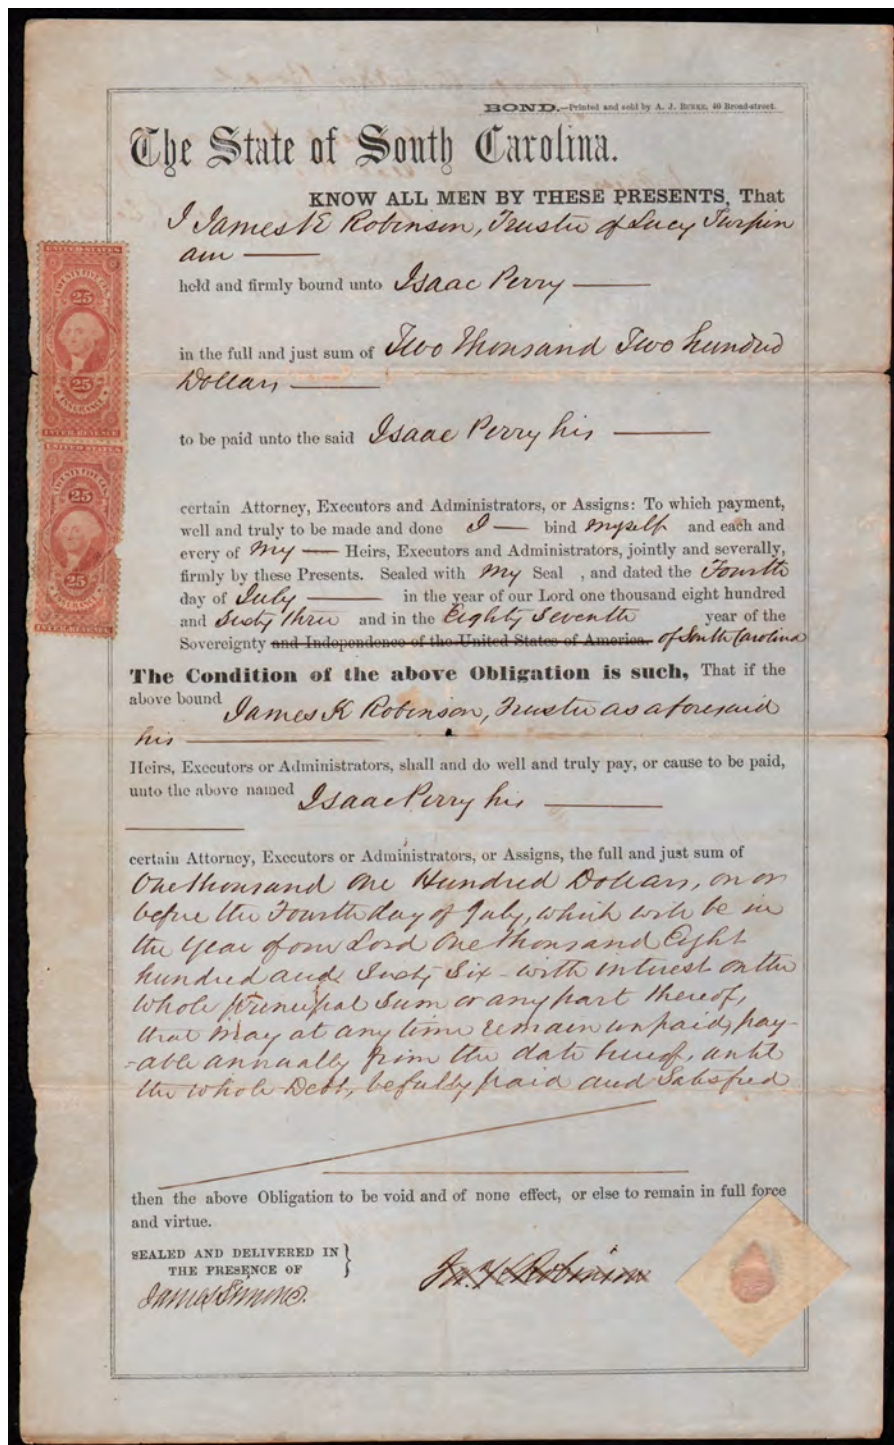 BOND.—Printed and sold by A. J. BURKE, 40 Broad-street.
The State of South Carolina.
KNOW ALL MEN BY THESE PRESENTS, That
I James K Robinson, Trustee of Lucy Turpin
am
held and firmly bound unto Isaac Perry
in the full and just sum of Two Thousand Two hundred
Dollars
to be paid unto the said Isaac Perry his
certain Attorney, Executors and Administrators, or Assigns: To which payment,
well and truly to be made and done I bind Myself and each and
every of My Heirs, Executors and Administrators, jointly and severally,
firmly by these Presents. Sealed with My Seal , and dated the Fourth
day of July in the year of our Lord one thousand eight hundred
and Sixty three and in the Eighty Seventh year of the
Sovereignty and Independence of the United States of America. of South Carolina
The Condition of the above Obligation is such, That if the
above bound James K Robinson, Trustee as aforesaid
his
Heirs, Executors or Administrators, shall and do well and truly pay, or cause to be paid,
unto the above named Isaac Perry his
certain Attorney, Executors or Administrators, or Assigns, the full and just sum of
One thousand One Hundred Dollars, on or
before the Fourth day of July, which will be in
the Year of our Lord One thousand Eight
hundred and Sixty Six - with interest on the
whole principal Sum or any part thereof,
that may at any time remain unpaid, pay-
-able annually from the date hereof, until
the whole Debt, be fully paid and Satisfied
then the above Obligation to be void and of none effect, or else to remain in full force
and virtue.
SEALED AND DELIVERED IN
THE PRESENCE OF
James Simons.
Jas. K Robinson
UNITED STATES
TWENTY FIVE CTS.
25
25
INSURANCE
INTER. REVENUE
UNITED STATES
TWENTY FIVE CTS.
25
25
INSURANCE
INTER. REVENUE